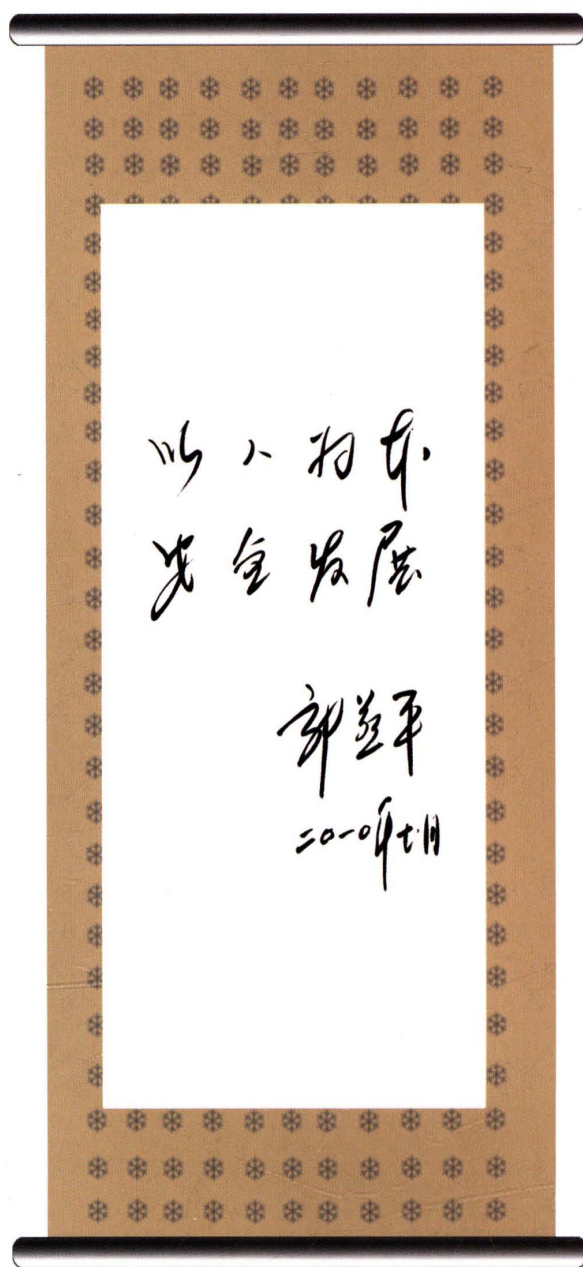 以人为本
安全发展
郭益平
二〇一〇年七月